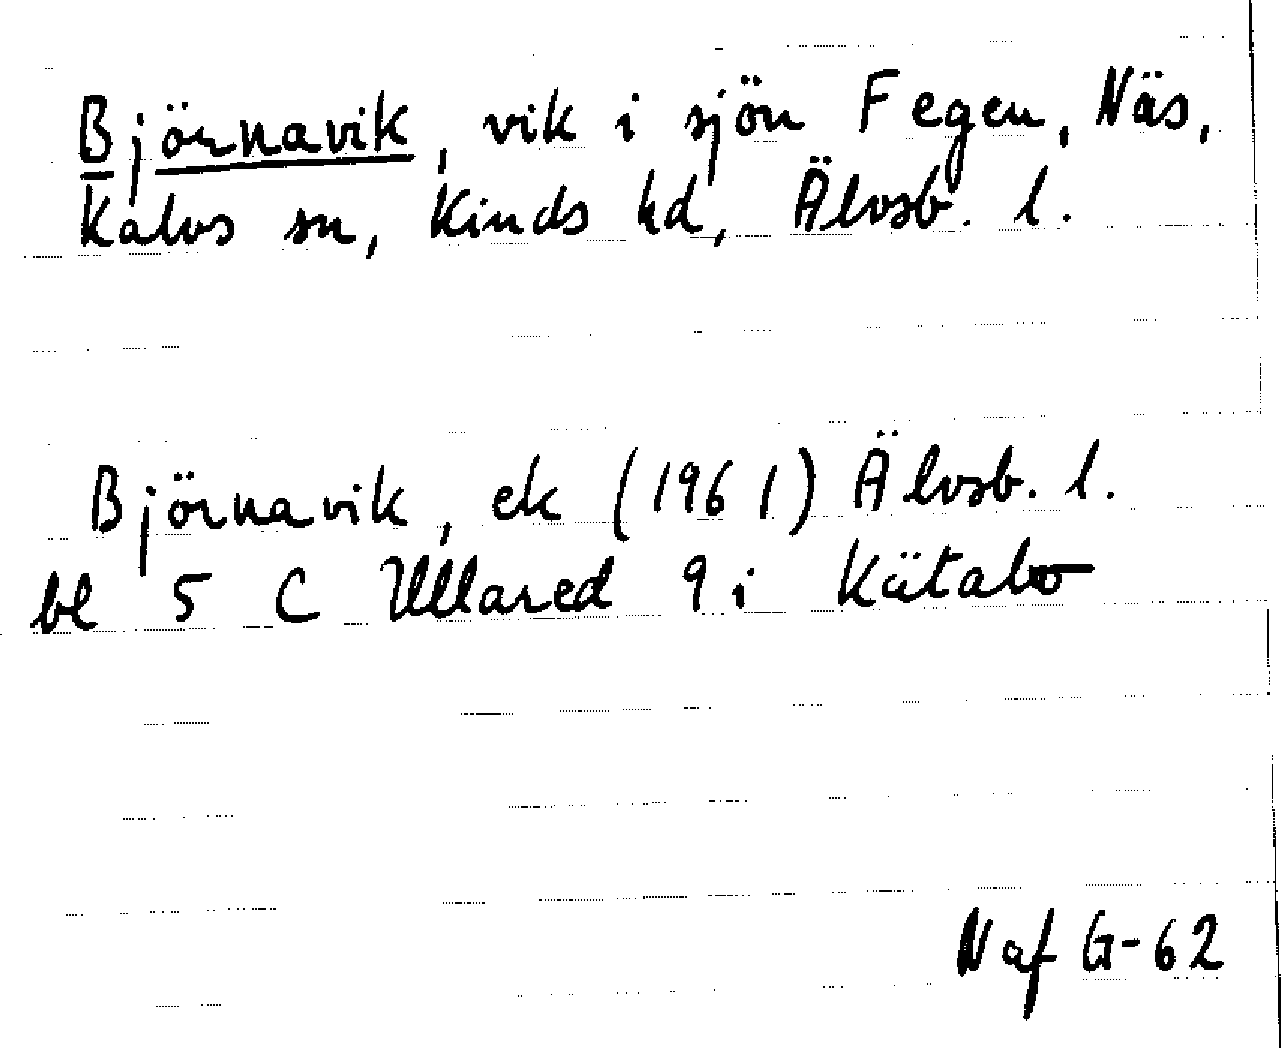 Björnavik, vik i sjön Fegen, Näs,
Kalvs sn, Kinds hd, Älvsb. l.
Björnavik, ek (1961) Älvsb. l.
bl 5 C Ullared 9 i Kätabo
Naf G-62